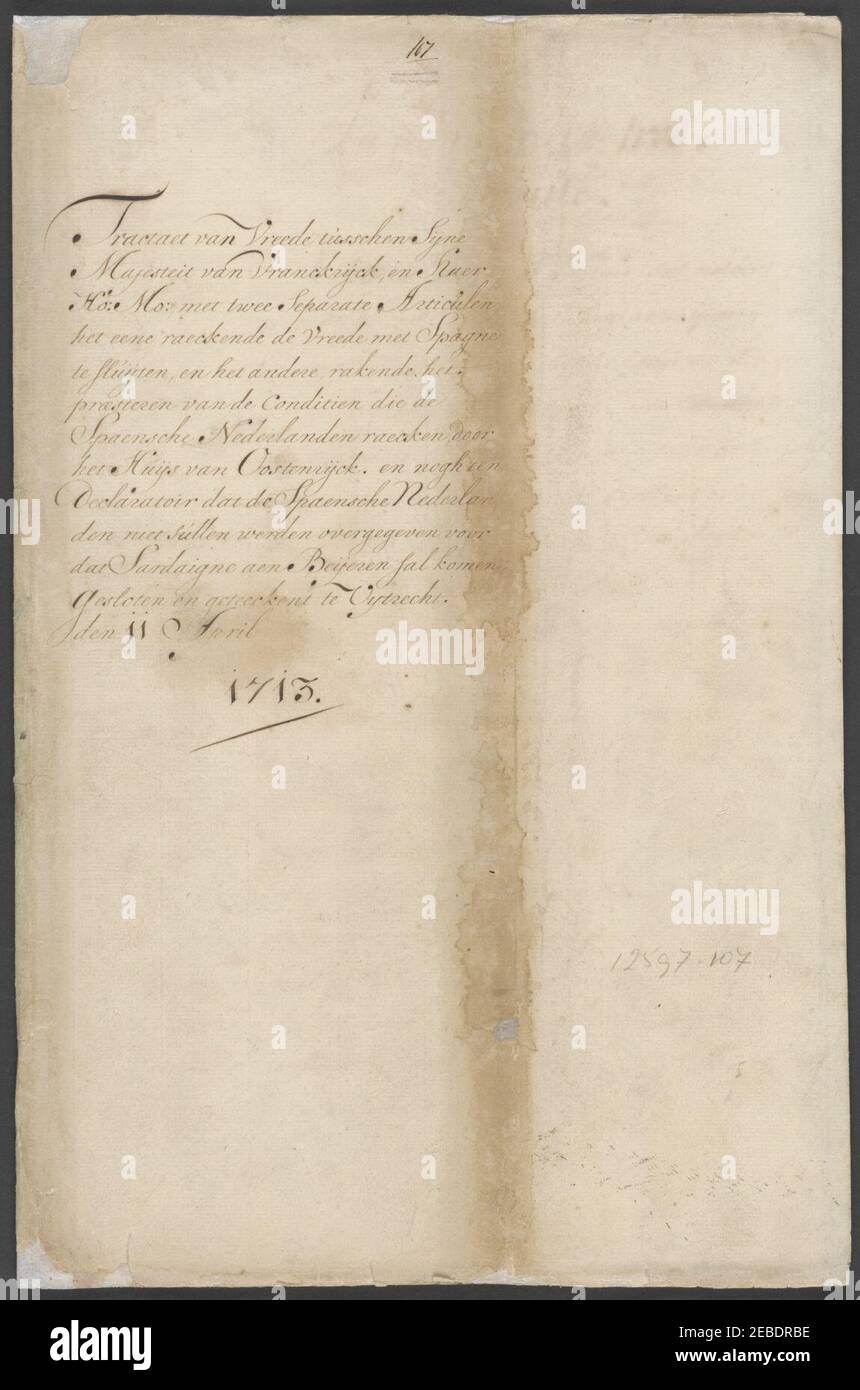 107
Tractaet van Vreede tusschen Syne
Majesteit van Vranckrijck, en Haer
Ho: Mo: met twee Separate Articulen
het eene raeckende de Vreede met Spagne
te sluijten, en het andere, rakende het
præsteren van de Conditien die de
Spaensche Nederlanden raecken, door
het Huijs van Oostenrijck. en nogh een
Declaratoir dat de Spaensche Nederlan
den niet sullen werden overgegeven voor
dat Sardaigne aen Beijeren sal komen
gesloten en geteeckent te Uytrecht.
den 11 April
1713.
12597.107
alamy
alamy
alamy
alamy
alamy
alamy
a
a
a
a
a
a
a
a
a
a
a
a
alamy
Image ID: 2EBDRBE
www.alamy.com